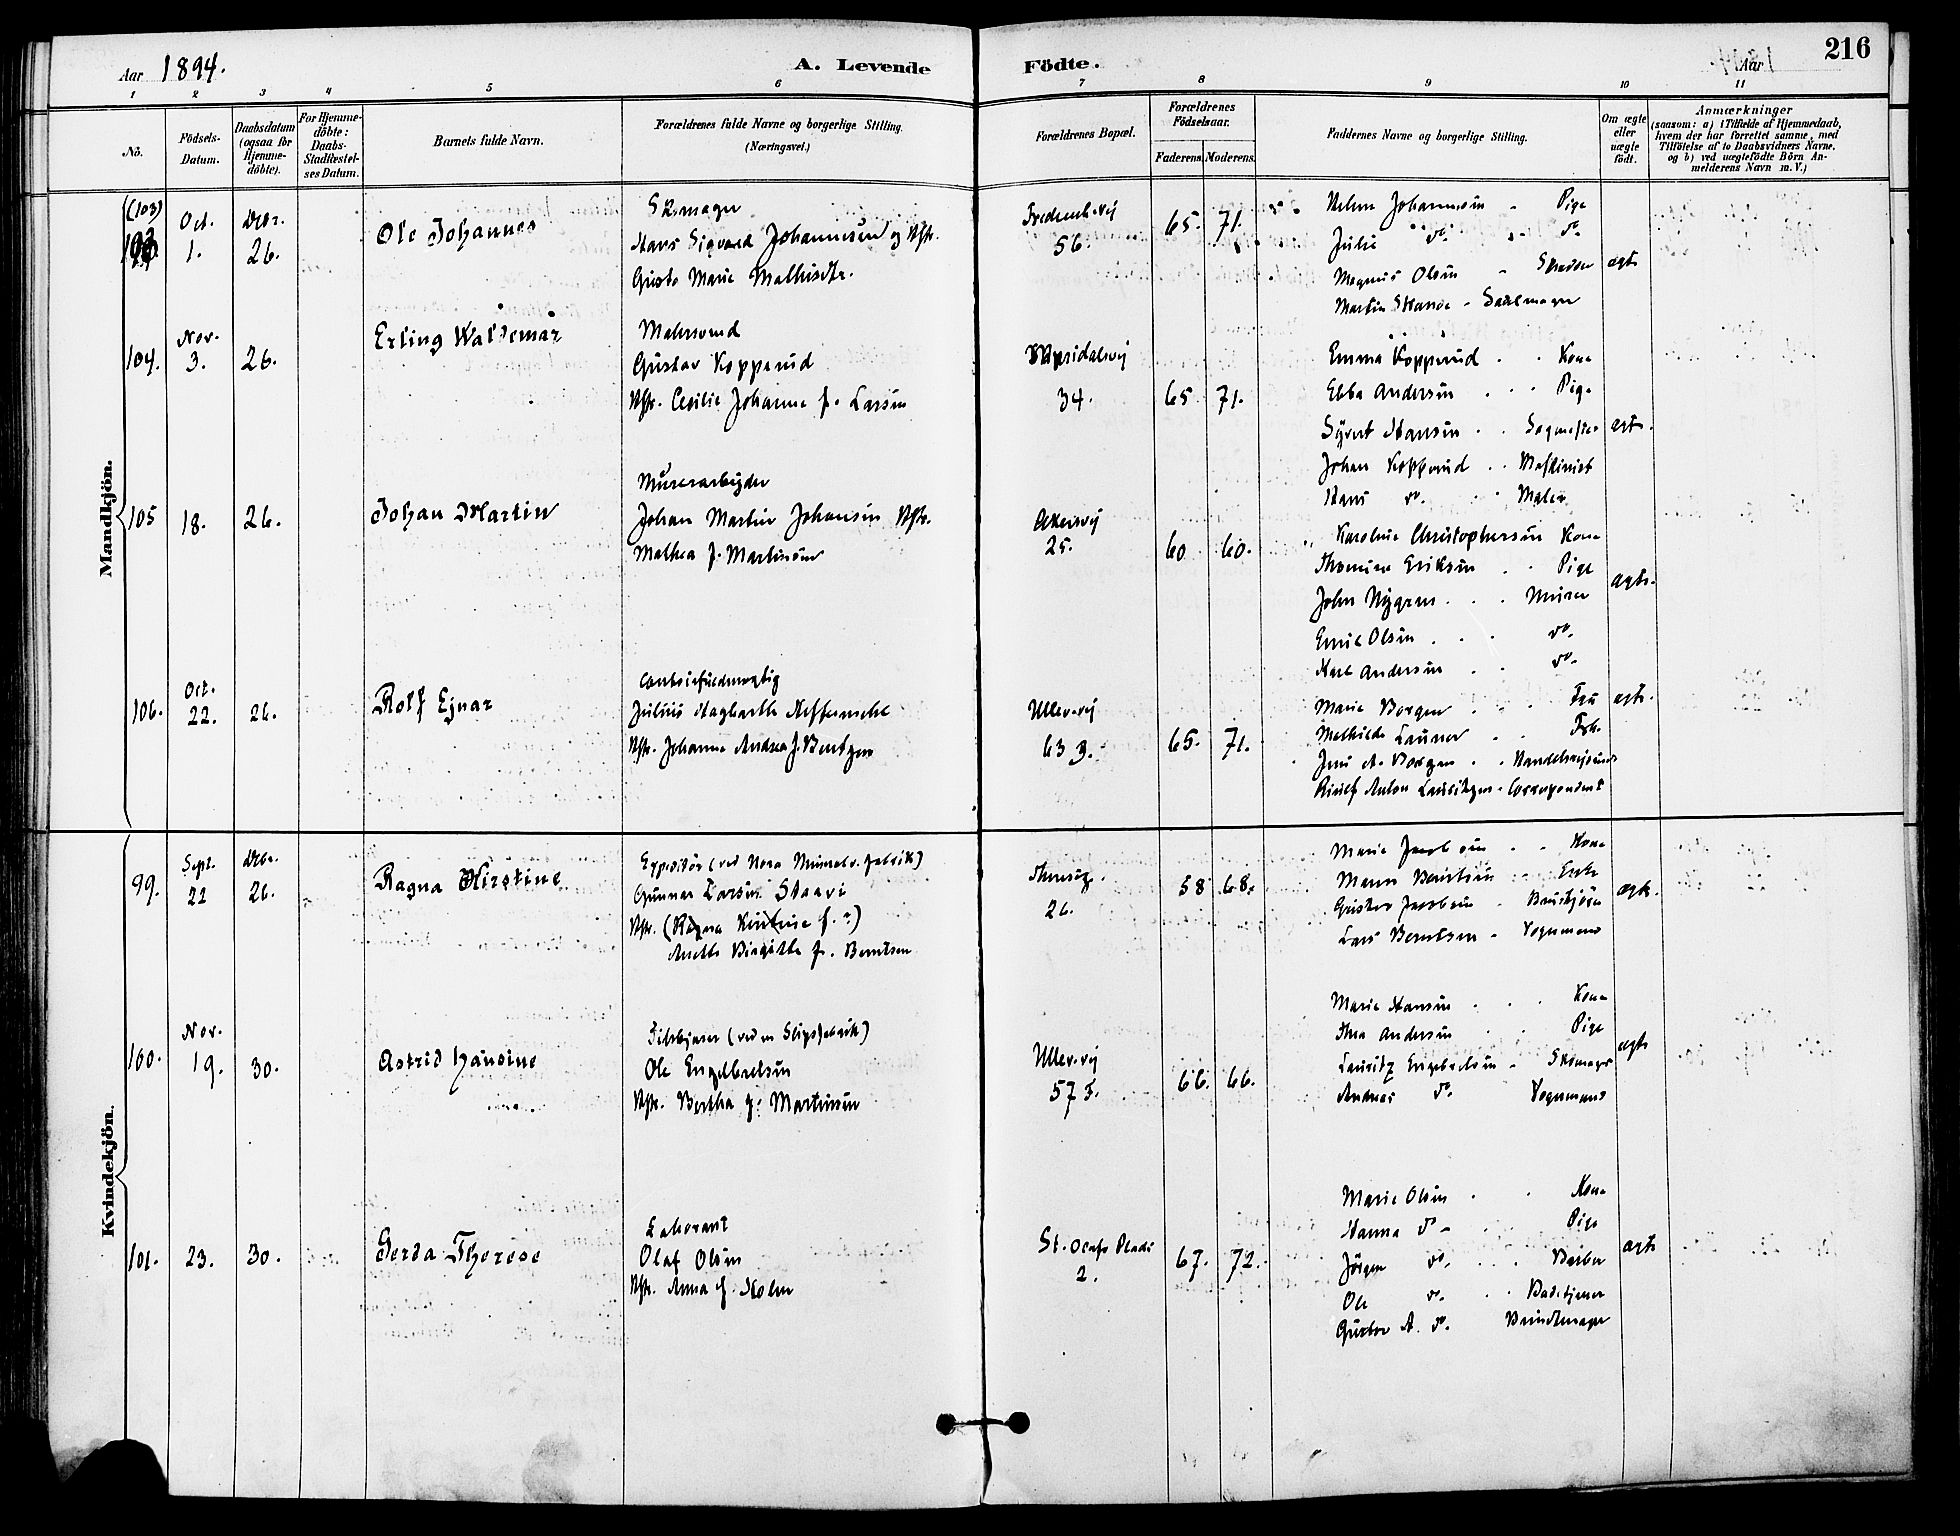 Aar 1894.
A. Levende Födte.
Aar
216
1 2 3 4 5 6 7 8 9 10 11
Nô.
Födsels-Datum.
Daabsdatum (ogsaa for Hjemme-döbte).
For Hjemme-döbte: Daabs-Stadfæstel-ses Datum.
Barnets fulde Navn.
Forældrenes fulde Navne og borgerlige Stilling. (Næringsvei.)
Forældrenes Bopæl.
Forældrenes Födselsaar.
Faderens. Moderens.
Faddernes Navne og borgerlige Stilling.
Om ægte eller uægte födt.
Anmærkninger
(saasom: a) i Tilfælde af Hjemmedaab, hvem der har forrettet samme, med Tilföielse af to Daabsvidners Navne, og b) ved uægtefödte Börn An-melderens Navn m. V.)
Mandkjön.
(103)
Oct. 1.
Decbr. 26.
Ole Johannes
Skomager
Hans Sigvard Johannesen og Hstr.
Gusta Marie Mathisdtr.
56.
65. 71.
Helene Johannesen - Pige
Julie do. do.
Magnus Olsen - Skrædder
Martin Hansen - Sadelmager
ægte
104.
Nov. 3.
26.
Erling Waldemar
Malersvend
Gustav Kopperud
Hstr. Cecilie Johanne f. Larsen
34.
65 71.
Emma Kopperud . . Kone
Ebba Andersen . . . Pige
Syvert Hansen . .
Johan Kopperud . . Maskinist
Hans do. Maler
ægte.
105
18.
26.
Johan Martin
Murerarbeider
Johan Martin Johansen Hstr.
Mathea f. Martinsen
Akersvej
25.
60 60.
Karoline Christophersen Kone
Thomine Eriksen . . Pige
John Nygren . . . Murer
Emil Olsen . . . do.
Karl Andersen . . do.
ægte.
106.
Oct. 22.
26.
Rolf Ejnar
Julius Hagbarth
Hstr. Johanne Andrea f. Bentzen
Ullev.vej
63 3.
65. 71.
Marie Borgen . . . Fru
Mathilde Launer . . Frk.
Jens A. Borgen . . Handelsreisende
Anton Lauritzen - Correspondent
ægte.
Kvindekjön.
99.
Sept. 22
Decbr. 26.
Ragna Kirstine
Expeditör (ved Nora Mineralv. fabrik)
Gunnar Larsen Staavi
Hstr. (Ragna Kirstine f. ?)
Anette Birgitte f. Berntsen
26.
58 68.
Marie Jacobsen . . Kone
Maren Berntsen . . Enke
Gustav Jacobsen .
Lars Berntsen - Vognmand
ægte.
100.
Nov. 19.
30.
Astrid Hansine
(ved en Slipsfabrik)
Ole Engebretsen
Hstr. Bertha f. Martinsen
Ullev.vej
57 3.
66. 66.
Marie Hansen . . . Kone
Thea Andersen . . Pige
Lauritz Engebretsen - Skomager
Andreas do. Vognmand
ægte
101.
23.
30.
Gerda Therese
Laborant
Olaf Olsen
Hstr. Anna f. Holm
St. Olafs Plads
2.
67. 72.
Marie Olsen . . Kone
Hanna do - Pige
Jörgen do. . . . Barber
Ole do. . . Badetjener
Gustav A. do. Bundtmager
ægte